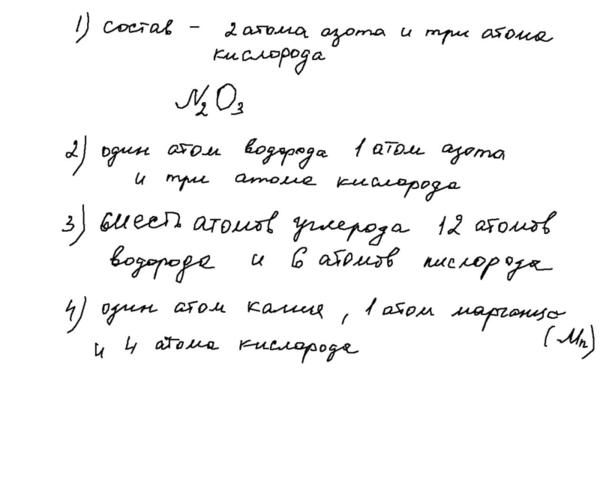 1) состав – 2 атома азота и три атома
кислорода
N₂O₃
2) один атом водорода 1 атом азота
и три атома кислорода
3) шесть атомов углерода 12 атомов
водорода и 6 атомов кислорода
4) один атом калия, 1 атом марганца
(Mn)
и 4 атома кислорода